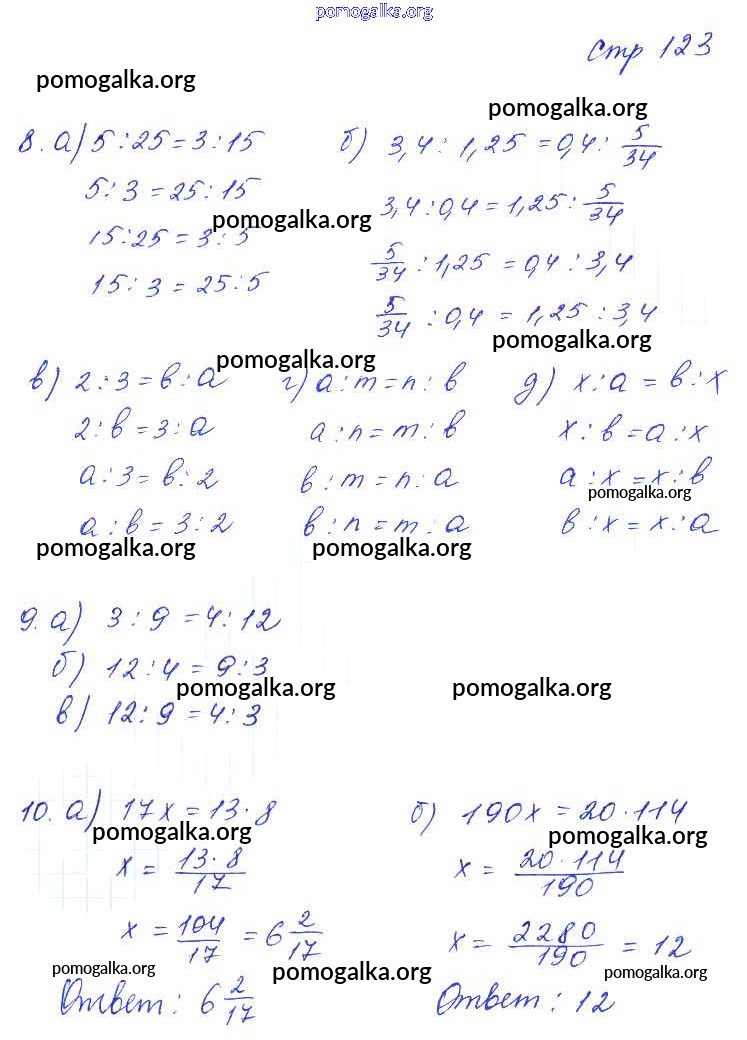 pomogalka.org
стр 123
pomogalka.org
pomogalka.org
8. а) 5:25=3:15
5:3=25:15
pomogalka.org
15:25=3:5
15:3=25:5
б) 3,4:1,25=0,4:5/34
3,4:0,4=1,25:5/34
5/34:1,25=0,4:3,4
5/34:0,4=1,25:3,4
pomogalka.org
pomogalka.org
в) 2:3=в:а
2:в=3:а
а:3=в:2
а:в=3:2
г) а:m=n:в
а:n=m:в
в:m=n:а
в:n=m:а
д) х:а=в:х
х:в=а:х
а:х=х:в
pomogalka.org
в:х=х:а
pomogalka.org
pomogalka.org
9. а) 3:9=4:12
б) 12:4=9:3
pomogalka.org
pomogalka.org
в) 12:9=4:3
10. а) 17х=13·8
pomogalka.org
х=13·8/17
х=104/17=6 2/17
pomogalka.org
Ответ: 6 2/17
pomogalka.org
б) 190х=20·114
pomogalka.org
х=20·114/190
х=2280/190=12
pomogalka.org
Ответ: 12